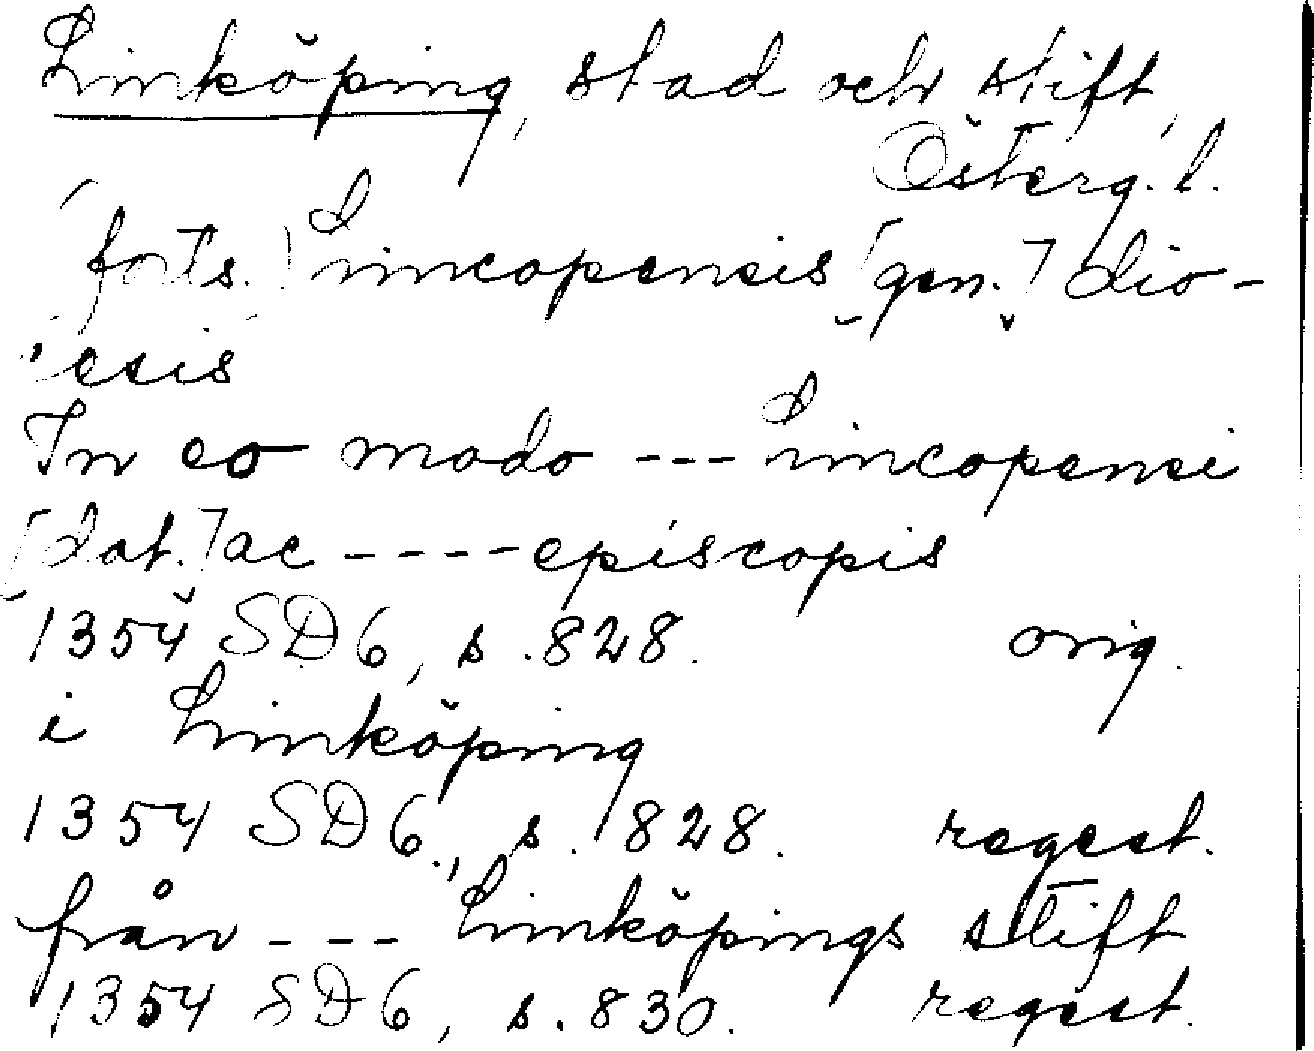 Linköping, stad och stift,
Österg.l.
(forts.) Lincopensis [gen.] dio-
cesis
In eo modo --- Lincopensi
[dat.] ac ---- episcopis
1354 SD6, s.828. orig.
i Linköping
1354 SD6., s. 828. regest.
från --- Linköpings stift
1354 SD6, s.830. regest.